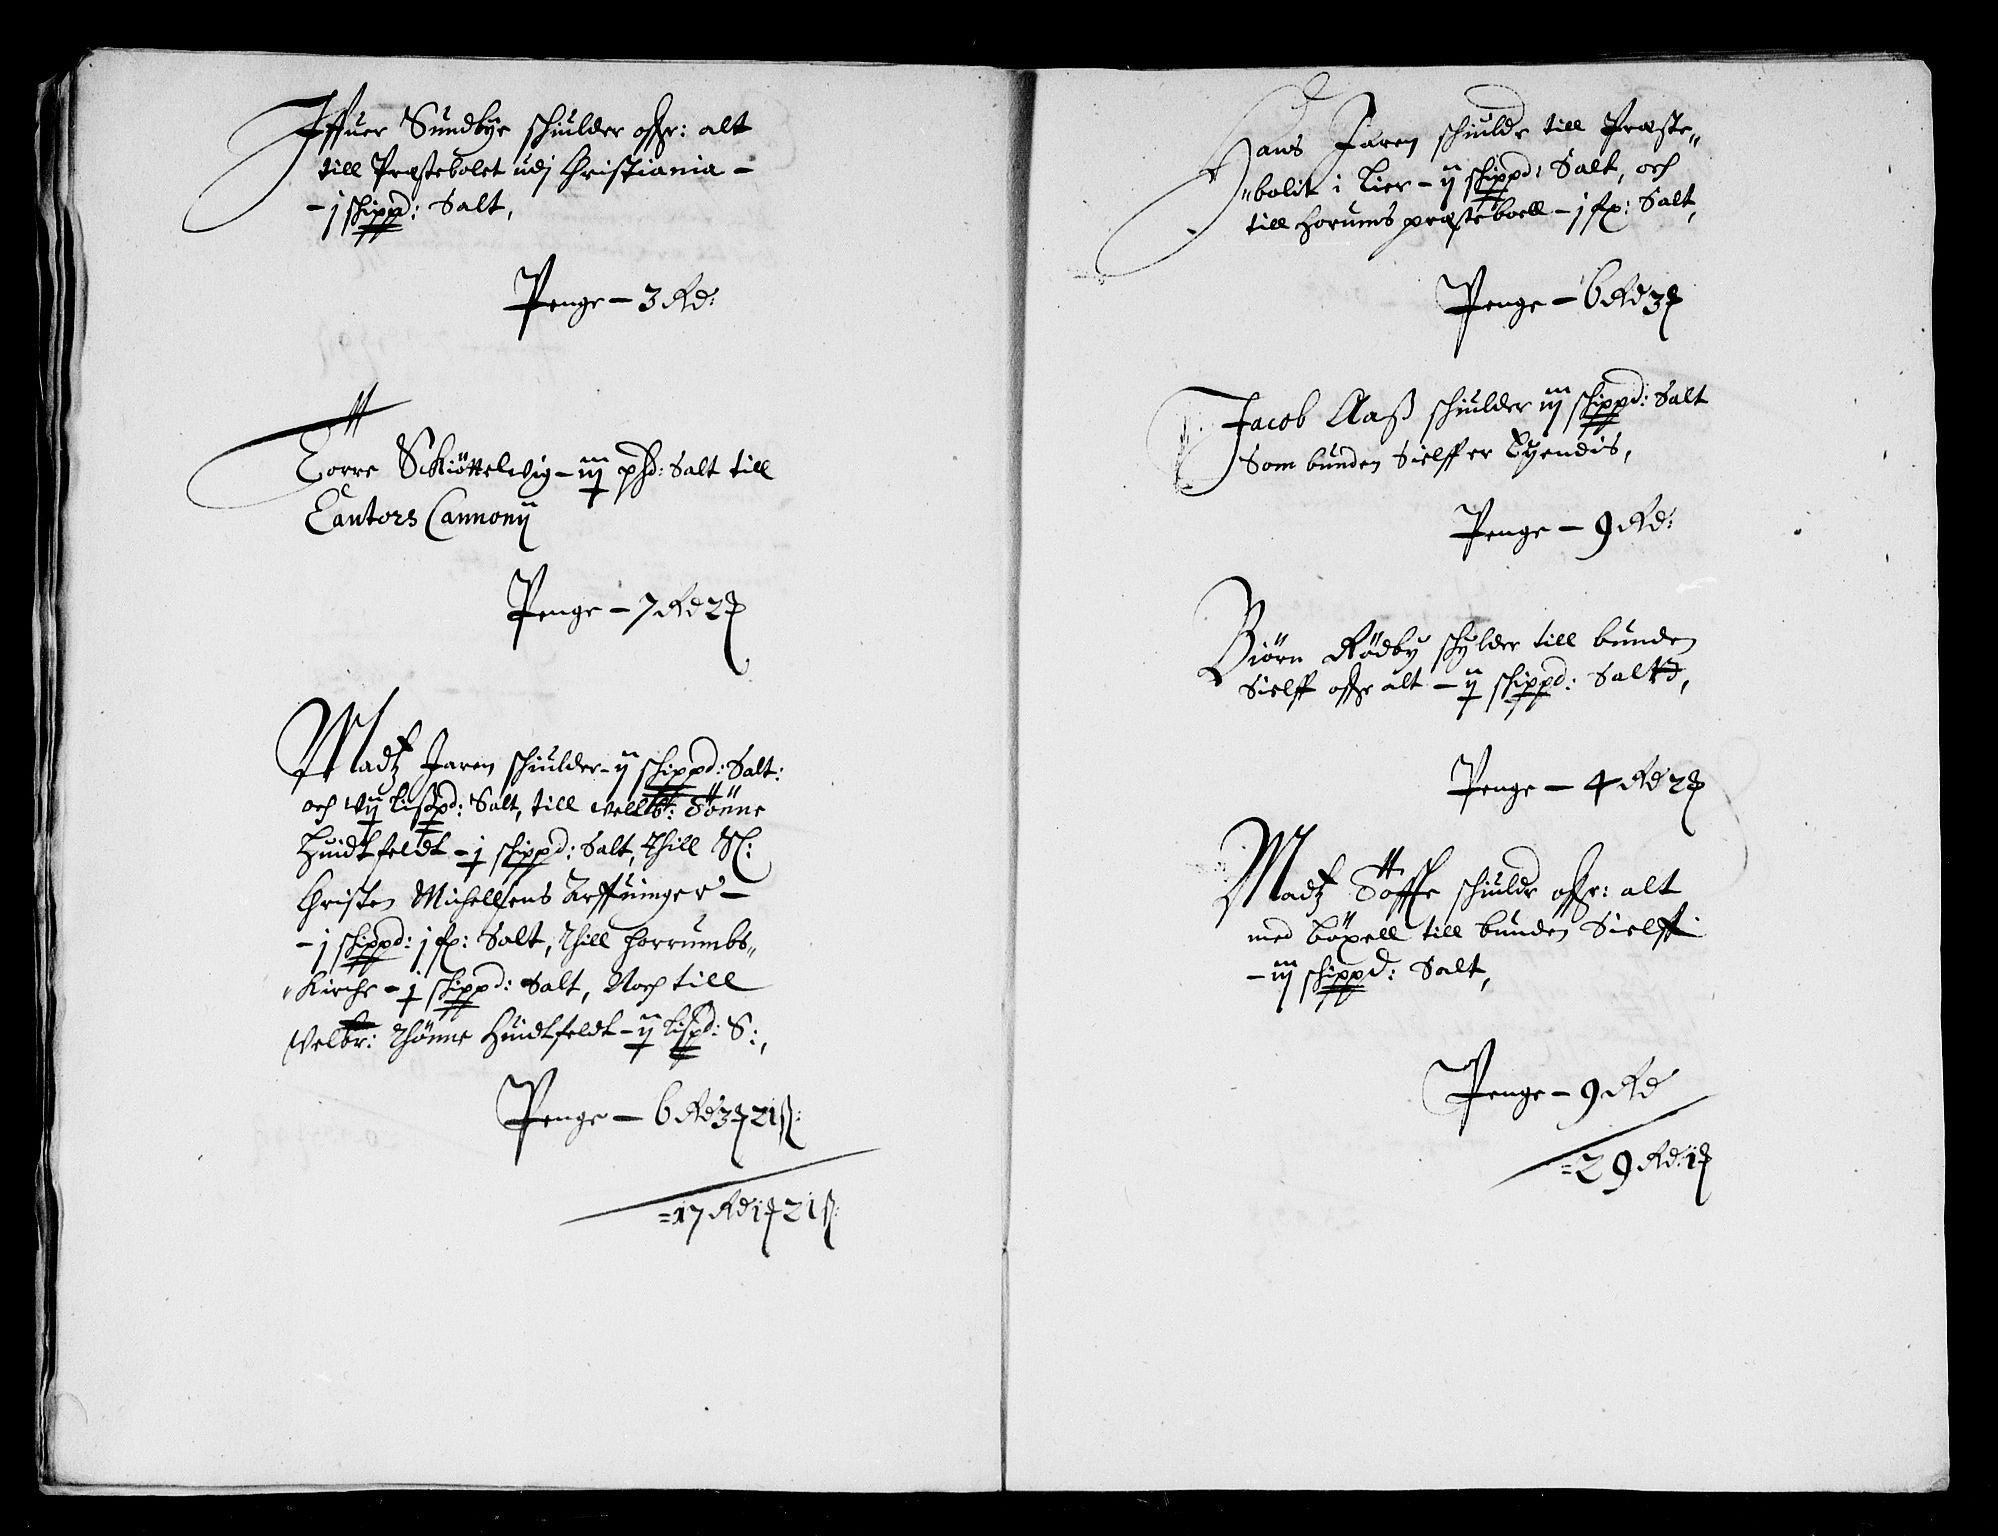 Iffuer Sundbye schiulder offr: alt
till Præstebolet udj Christiania -
- j schippd: Salt,
Penge - 3 Rd:
Torre Schiöttelwig - iij phd: Salt till
Cantors Cannonij
Penge - 7 Rd 2
Madtz Jaren schiulder - ij schippd: Salt:
och vij lißpd: Salt, till velb: Tönne
Huidtfeldt - j schippd: Salt, Thill Sl:
Christen Michellsens Arffuinger -
- j schippd: j fr: Salt, Thill Horrumbs"
"Kirche - j schippd: Salt, Noch till
Velbr: Thönne Huidtfeldt - ij lispd: S:,
Penge - 6 Rd 3 21 ß:
= 17 Rd 1 21 ß:
Hans Jaren schiulder till Præste"
"bolit i Lier - ij schippd: Salt, och
till Horums præsteboell - j fr: Salt,
Penge - 6 Rd 3
Jacob Aaß schiulder iij schippd: Salt
Som bunden Sielff er Eyendis,
Penge - 9 Rd:
Biörn Rödby schylder till bunden
Sielff offr alt - ij schippd: Salt,
Penge - 4 Rd 2
Madtz Töffte schiulder offr: alt
med böxell till bunden Sielff
- iij schippd: Salt,
Penge - 9 Rd
= 29 Rd: 1